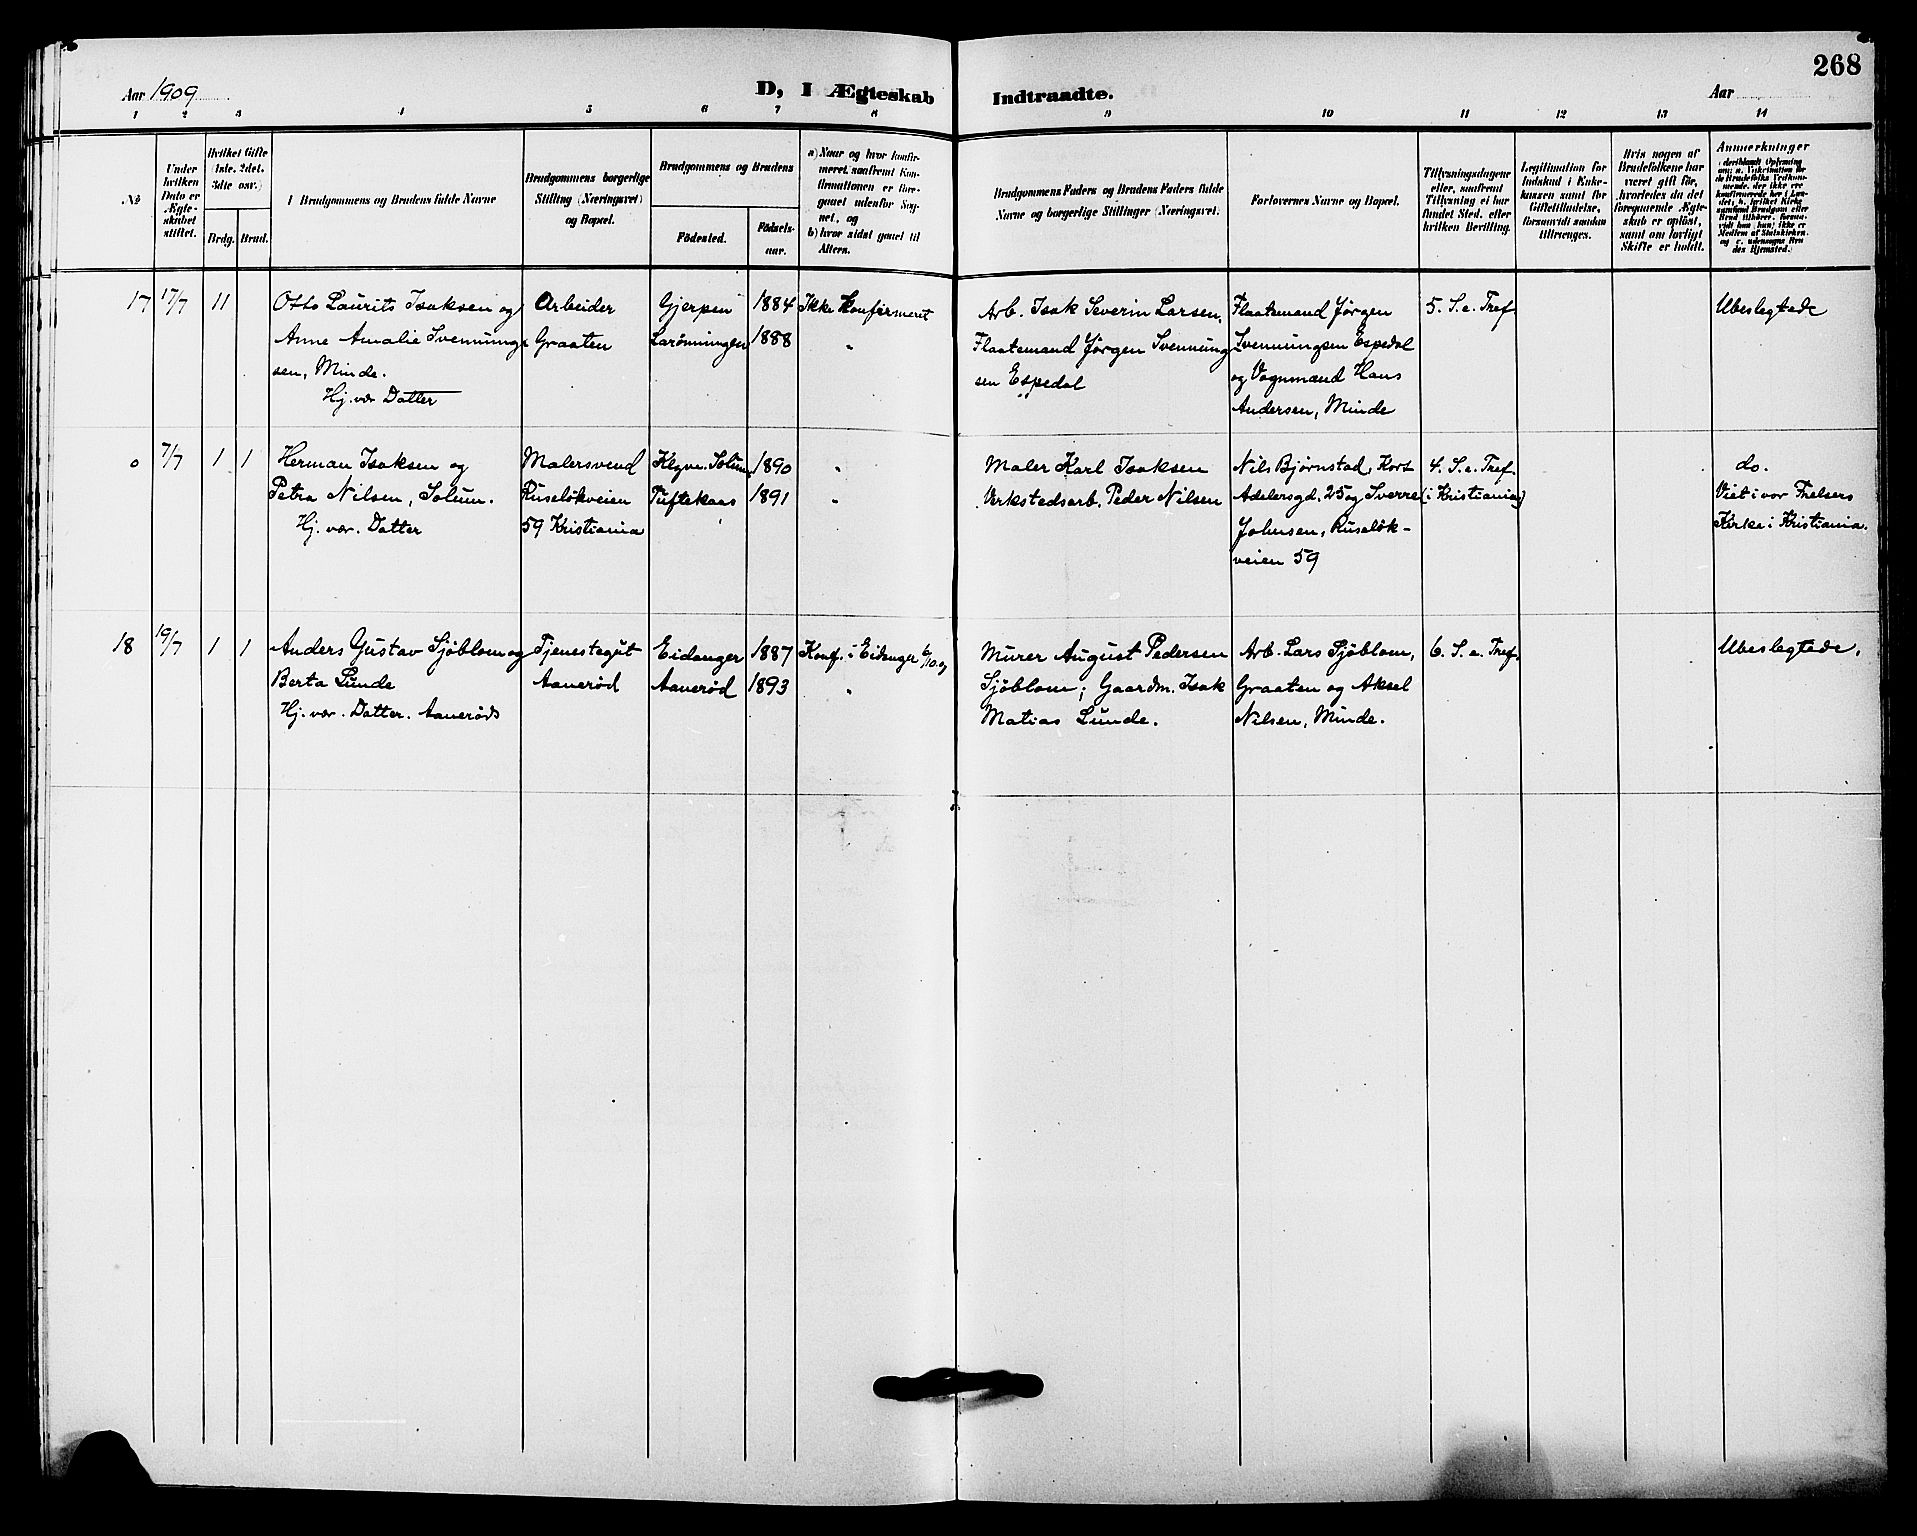 268
Aar 1909
D, I Ægteskab Indtraadte.
Aar
1 2 3 4 5 6 7 8 9 10 11 12 13 14
No
Under hvilken Dato er Ægteskabet stiftet.
Hvilket Gifte (1ste, 2det, 3dte osv.)
Brdg. Brud.
Brudgommens og Brudens fulde Navne
Brudgommens borgerlige Stilling (Næringsvei) og Bopæl.
Brudgommens og Brudens
Fødested.
Fødselsaar.
a) Naar og hvor konfirmeret, saafremt Konfirmationen er foregaaet udenfor Sognet, og
b) hvor sidst gaaet til Alters.
Brudgommens Faders og Brudens Faders fulde Navne og borgerlige Stillinger (Næringsvei).
Forlovernes Navne og Bopæl.
Tillysningsdagene eller, saafremt Tillysning ei har fundet Sted, efter hvilken Bevilling.
Legitimation for Indskud i Enkekassen samt for Giftetilladelse, forsaavidt saadan tiltrænges.
Hvis nogen af Brudefolkene har været gift før, hvorledes da det foregaaende Ægteskab er opløst, samt om lovligt Skifte er holdt.
Anmærkninger
17 17/7 1 1
Otto Laurits Isaksen og
Anne Amalie Svennungsen, Minde.
Hj. vær. Datter
Arbeider
Graaten
Gjerpen 1884
Larönningen 1888
Ikke konfirmeret
"
Arb. Isak Severin Larsen,
Flaatemand Jørgen Svennungsen Espedal
Flaatemand Jørgen
Svennungsen Espedal
og Vognmænd Hans
Andersen, Minde
5. S. e. Tref
Ubeslegtede
0 7/7 1 1
Herman Isaksen og
Petra Nilsen, Solum.
Hj. vær. Datter
Malersvend
Ruseløkveien
59 Kristiania
Klyve. Solum 1890
Tuftekaas 1891
"
"
Maler Karl Isaksen
Verkstedsarb. Peder Nilsen
Nils Bjørnstad, Kort
Adelersgd. 25 og Sverre
Johnsen, Ruseløk-
veien 59
4. S. e. Tref.
(i Kristiania)
do.
Viet i vor Frelsers
Kirke i Kristiania.
18 19/7 1 1
Anders Gustav Sjöblom og
Berta Lunde
Hj. vær. Datter. Aanerøds
Tjenestegut
Aanerød
Eidanger 1887
Aanerød 1893
Konf. i Eidanger 6/10.07
"
Murer August Pedersen
Sjöblom; Gaardm. Isak
Matias Lunde.
Arb. Lars Sjöblom,
Graaten og Aksel
Nilsen, Minde.
6. S. e. Tref.
Ubeslegtede.